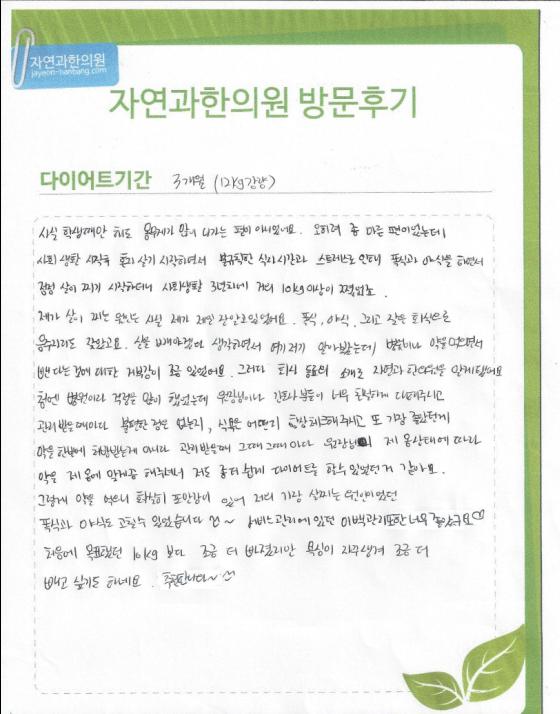 자연과한의원
jayeon-hanbang.com
자연과한의원 방문후기
다이어트기간 3개월 (12kg감량)
사실 학생때만 해도 몸무게가 많이 나가는 편이 아니었어요. 오히려 좀 마른 편이었는데
사회 생활 시작후 혼자 살기 시작하면서 불규칙한 식사시간과 스트레스로 인해 폭식과 야식을 하면서
점점 살이 찌기 시작하더니 사회생활 3년차에 거의 10kg이상이 쪘었죠.
제가 살이 찌는 원인은 사실 제가 제일 잘 알고있었어요. 폭식, 야식, 그리고 잦은 회식으로
술자리도 잦았고요. 살을 빼야겠다 생각하면서 여기저기 알아봤는데 병원이나 약을 먹으면서
뺀다는것에 대한 거부감이 조금 있었어요. 그러다 회사 동료의 소개로 자연과 한의원을 알게됐어요
첨엔 병원이라 걱정을 많이 했었는데 원장님이나 간호사분들이 너무 친절하게 대해주시고
관리받을때마다 불편한 점은 없는지, 식욕은 어떤지 항상체크해주시고 또 가장 좋았던게
약을 한번에 처방받는게 아니라 관리받을때 그때그때마다 원장님이 제 몸상태에 따라
약을 제 몸에 맞게끔 해주셔서 저도 좀 더 쉽게 다이어트를 할수 있었던거 같아요.
그렇게 약을 먹으니 확실히 포만감이 있어 저의 가장 살찌는 원인이었던
폭식과 야식도 고칠수 있었습니다 ~ 서비스관리에 있던 이백관리또한 너무 좋았구요
처음에 목표했던 10kg 보다 조금 더 빠졌지만 욕심이 자꾸생겨 조금 더
빼고 싶기도 하네요. 추천합니다~